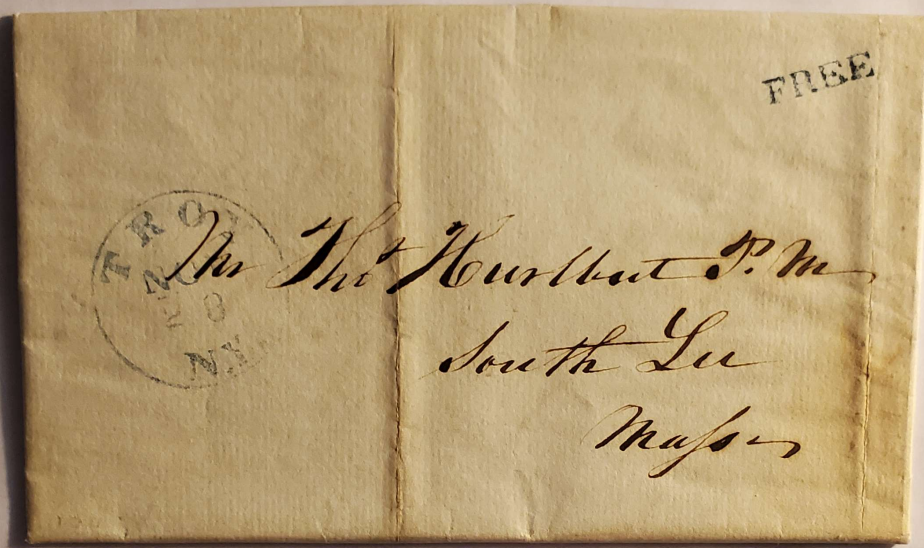 FREE
TROY
8
NY
Mr Thos Hurlbut P. M
South Lee
Mass